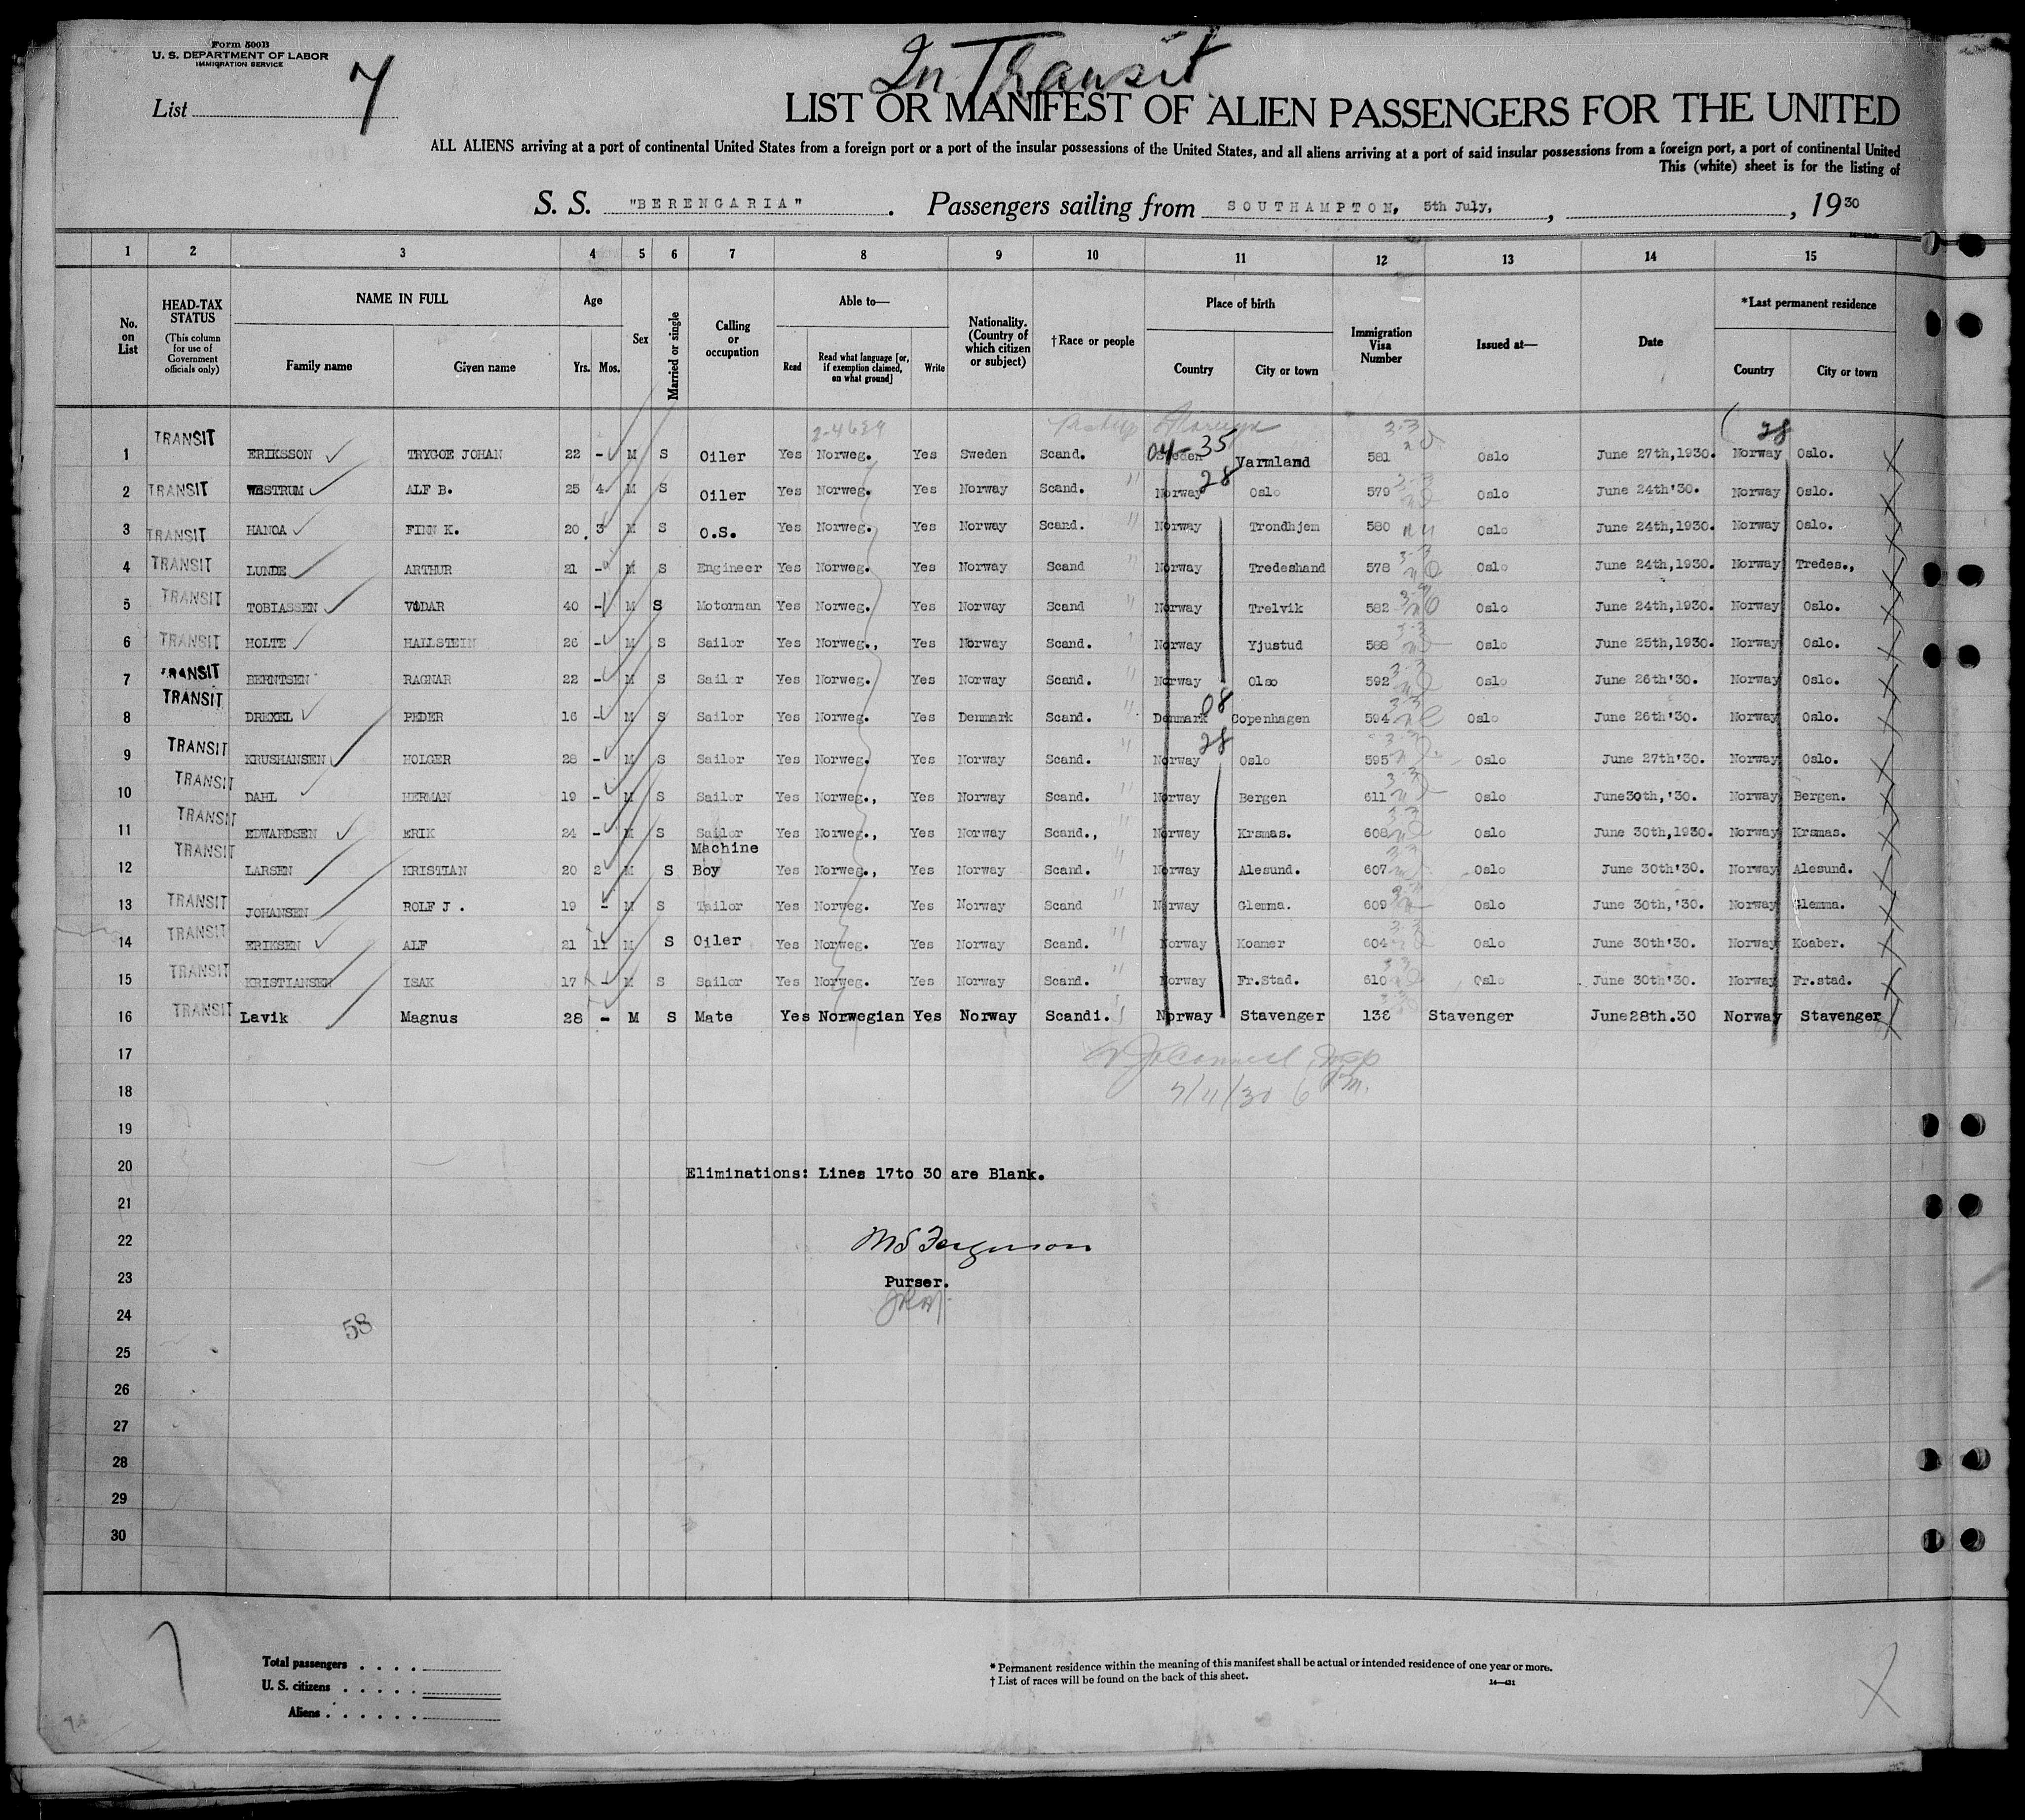 Form 500B
U. S. DEPARTMENT OF LABOR
IMMIGRATION SERVICE
List 7
In Transit
LIST OR MANIFEST OF ALIEN PASSENGERS FOR THE UNITED
ALL ALIENS arriving at a port of continental United States from a foreign port or a port of the insular possessions of the United States, and all aliens arriving at a port of said insular possessions from a foreign port, a port of continental United
This (white) sheet is for the listing of
S. S. "BERENGARIA". Passengers sailing from SOUTHAMPTON, 5th July, , , 1930
1 2 3 4 5 6 7 8 9 10 11 12 13 14 15
No. on List HEAD-TAX STATUS (This column for use of Government officials only) NAME IN FULL Family name Given name Age Yrs. Mos. Sex Married or single Calling or occupation Able to— Read Read what language [or, if exemption claimed, on what ground] Write Nationality. (Country of which citizen or subject) †Race or people Place of birth Country City or town Immigration Visa Number Issued at— Date *Last permanent residence Country City or town
04-35 28
1 TRANSIT ERIKSSON TRYGGE JOHAN 22 - M S Oiler Yes Norweg. Yes Sweden Scand. Sweden Varmland 581 Oslo June 27th,1930. Norway Oslo.
28
2 TRANSIT WESTRUM ALF B. 25 4 M S Oiler Yes Norweg. Yes Norway Scand. Norway Oslo 579 Oslo June 24th'30. Norway Oslo.
3 TRANSIT HANOA FINN K. 20 3 M S O.S. Yes Norweg. Yes Norway Scand. Norway Trondhjem 580 Oslo June 24th,1930. Norway Oslo.
4 TRANSIT LUNDE ARTHUR 21 - M S Engineer Yes Norweg. Yes Norway Scand Norway Tredeshand 578 Oslo June 24th,1930. Norway Tredes.,
5 TRANSIT TOBIASSEN VIDAR 40 - M S Motorman Yes Norweg. Yes Norway Scand Norway Trelvik 582 Oslo June 24th,1930. Norway Oslo.
6 TRANSIT HOLTE HALLSTEIN 26 - M S Sailor Yes Norweg., Yes Norway Scand. Norway Yjustud 588 Oslo June 25th,1930. Norway Oslo.
7 TRANSIT BERNTSEN RAGNAR 22 - M S Sailor Yes Norweg. Yes Norway Scand. Norway Olso 592 Oslo June 26th'30. Norway Oslo.
08
8 TRANSIT DREXEL PEDER 16 - M S Sailor Yes Norweg. Yes Denmark Scand. Denmark Copenhagen 594 Oslo June 26th'30. Norway Oslo.
28
9 TRANSIT KRUSHANSEN HOLGER 28 - M S Sailor Yes Norweg. Yes Norway Scand. Norway Oslo 595 Oslo June 27th'30. Norway Oslo.
10 TRANSIT DAHL HERMAN 19 - M S Sailor Yes Norweg., Yes Norway Scand. Norway Bergen 611 Oslo June30th,'30. Norway Bergen.
11 TRANSIT EDWARDSEN ERIK 24 - M S Sailor Yes Norweg., Yes Norway Scand., Norway Krsmas. 608 Oslo June 30th,1930. Norway Krsmas.
12 TRANSIT LARSEN KRISTIAN 20 2 M S Machine Boy Yes Norweg., Yes Norway Scand. Norway Alesund. 607 Oslo June 30th'30. Norway Alesund.
13 TRANSIT JOHANSEN ROLF J . 19 - M S Tailor Yes Norweg. Yes Norway Scand Norway Glemma. 609 Oslo June 30th,'30. Norway Glemma.
14 TRANSIT ERIKSEN ALF 21 11 M S Oiler Yes Norweg. Yes Norway Scand. Norway Koamer 604 Oslo June 30th'30. Norway Koaber.
15 TRANSIT KRISTIANSEN ISAK 17 - M S Sailor Yes Norweg. Yes Norway Scand. Norway Fr.Stad. 610 Oslo June 30th'30. Norway Fr.stad.
16 TRANSIT Lavik Magnus 28 - M S Mate Yes Norwegian Yes Norway Scandi. Norway Stavenger 136 Stavenger June28th.30 Norway Stavenger
17
18 7/11/30 6 P.M.
19
20 Eliminations: Lines 17to 30 are Blank.
21
22 Ferguson
23 Purser.
24
58
25
26
27
28
29
30
7
Total passengers . . . .
U. S. citizens . . . . .
Aliens . . . . . .
* Permanent residence within the meaning of this manifest shall be actual or intended residence of one year or more.
† List of races will be found on the back of this sheet.
14—431